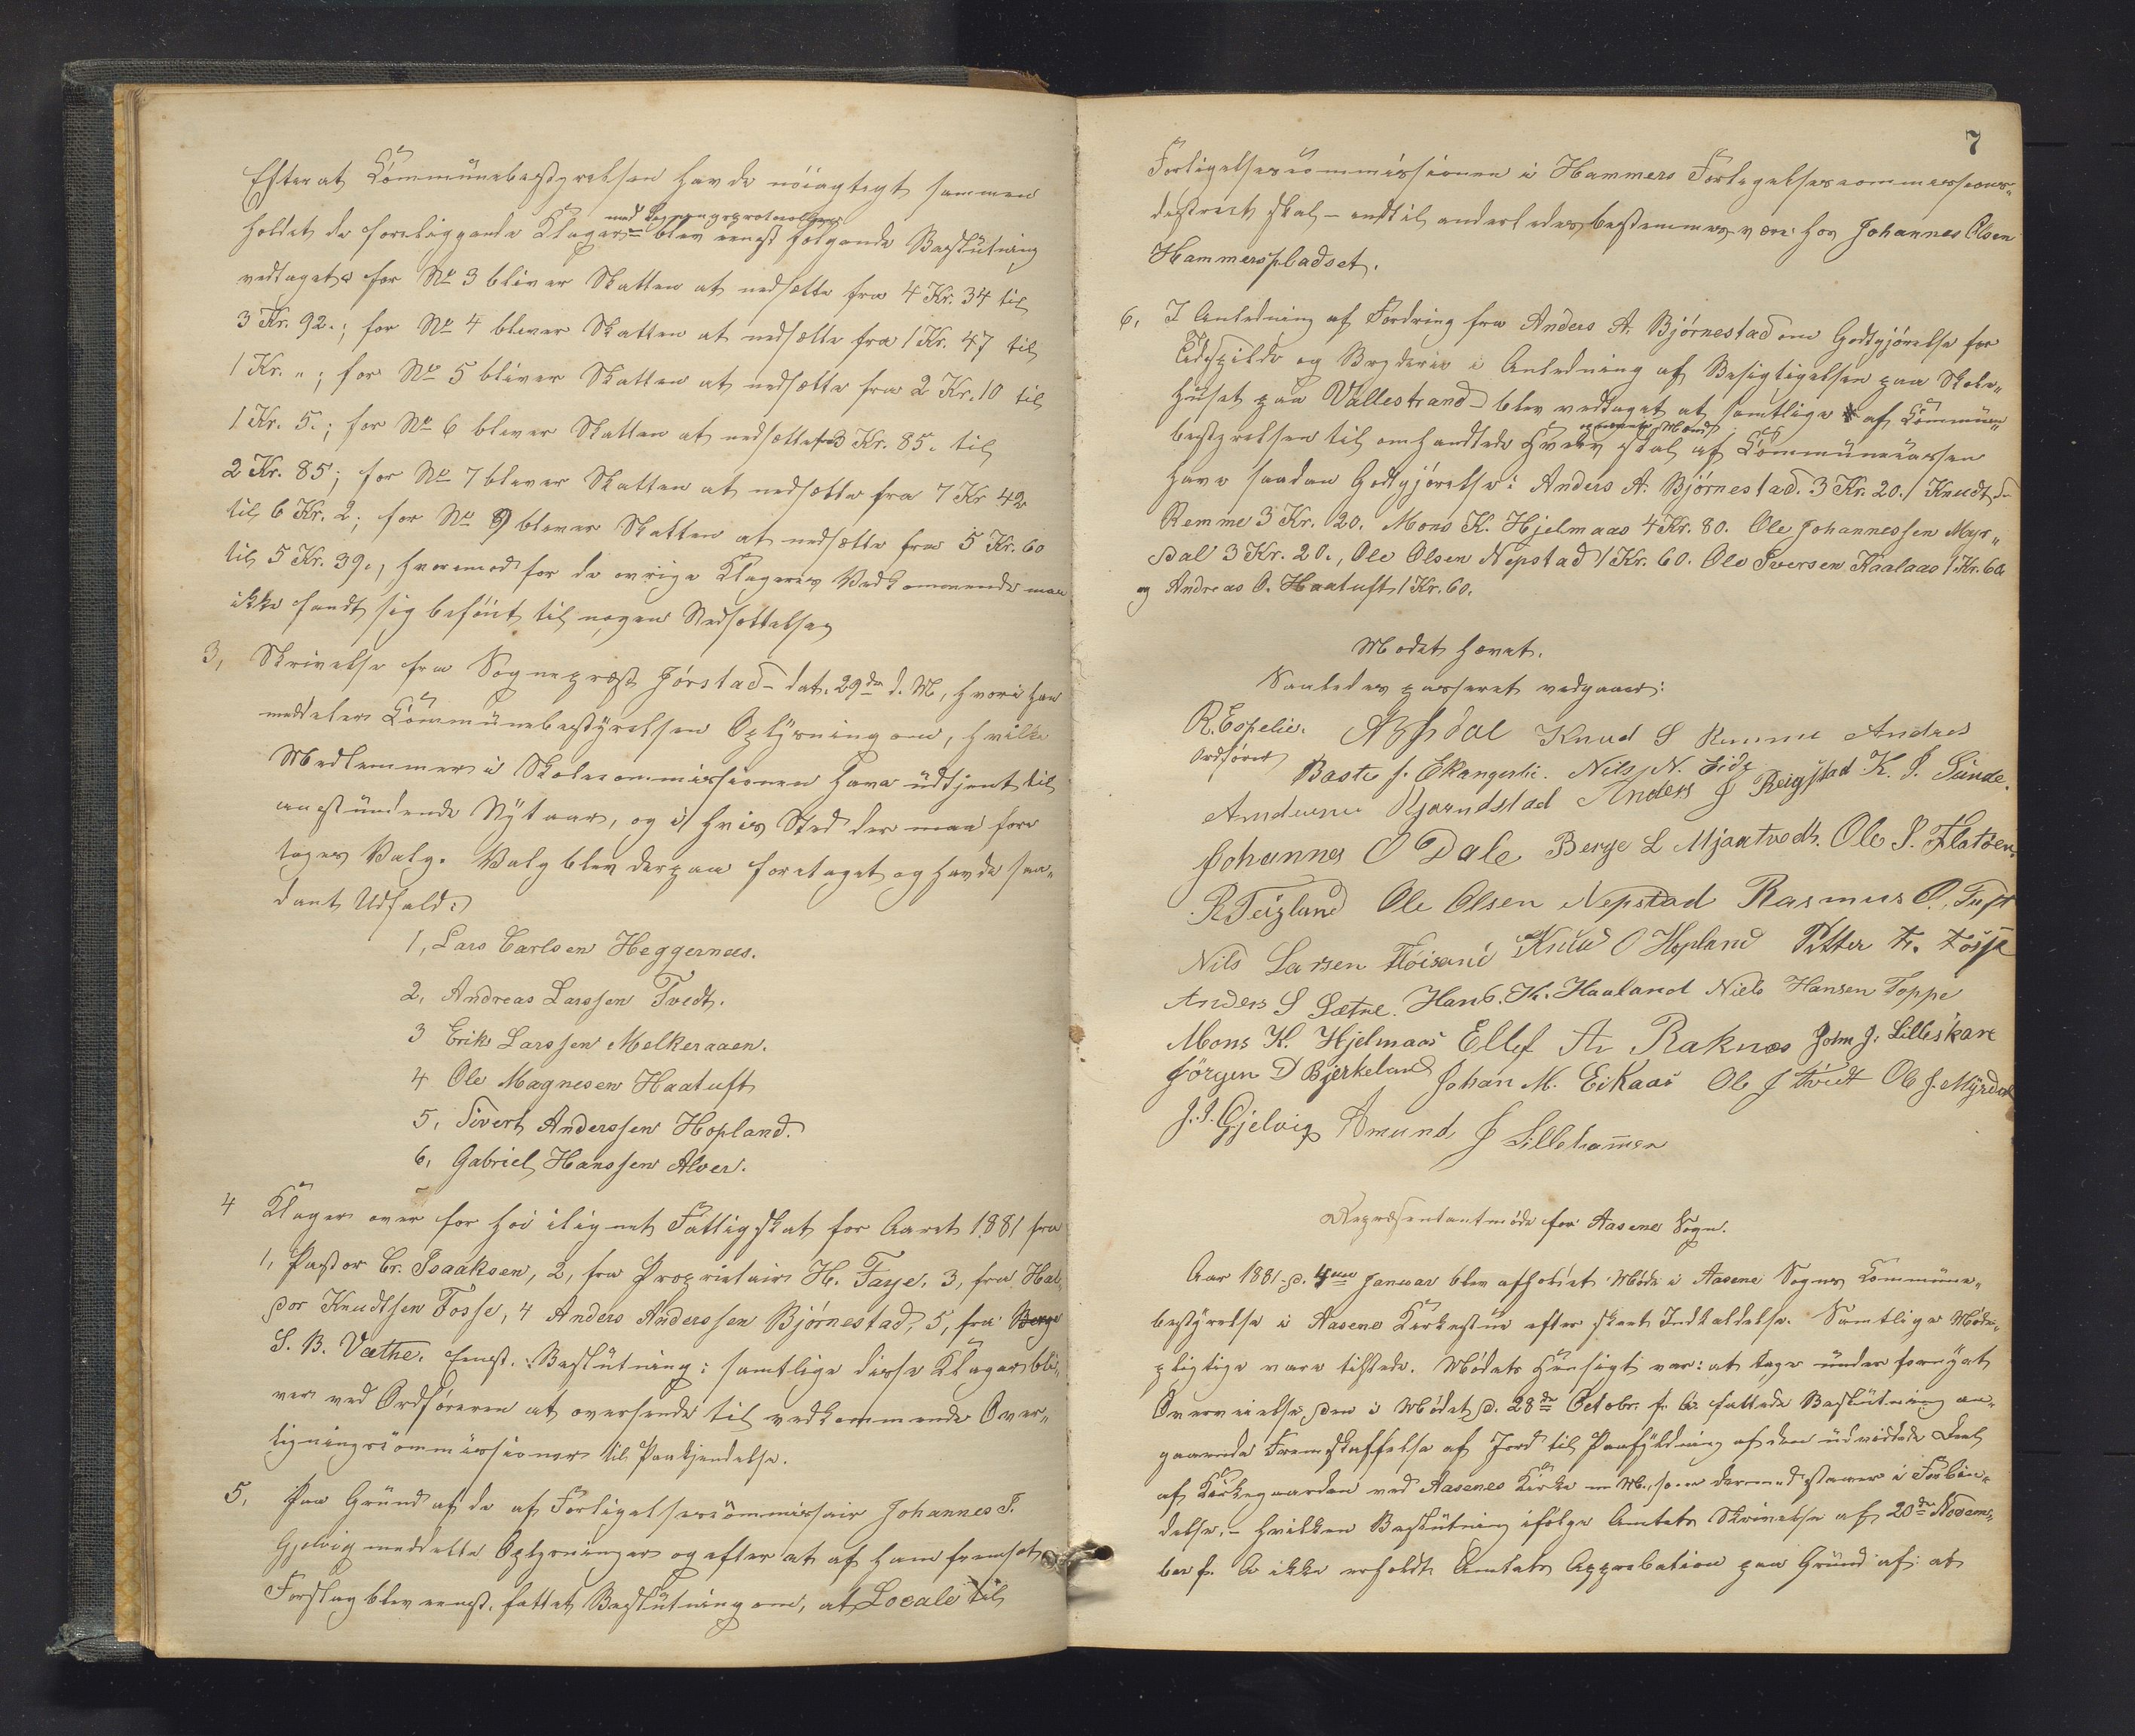 Efterat Communebestyrelsen havde nöiagtigt sammen
holdt de foreliggende Klager med Ligningsprotocollen blev eenst. følgende Beslutning
vedtaget: for No 3 bliver Skatten at nedsætte fra 4 Kr. 34 til
3 Kr. 92.; for No 4 bliver Skatten at nedsætte fra 1 Kr. 47 til
1 Kr. „; for No 5 bliver Skatten at nedsætte fra 2 Kr. 10 til
1 Kr. 5.; for No 6 bliver Skatten at nedsætte fra 3 Kr. 85. til
2 Kr. 85; for No 7 bliver Skatten at nedsætte fra 7 Kr 42
til 6 Kr. 2; for No 9 bliver Skatten at nedsætte fra 5 Kr. 60
til 5 Kr. 39., hvoremod for de øvrige Klageres Vedkommende man
ikke fandt sig beföiet til nogen Nedsættelse
3, Skrivelse fra Sognepræst Jörstad – dat. 29de d. M, hvori han
meddeler Communebestyrelsen Oplysning om, hvilke
Medlemmer i Skolecommissionen have udtjent til
anstundende Nytaar, og i hvis Sted der maa fore
tages Valg. Valg blev derpaa foretaget og havde saa„
dant Udfald:
1, Lars Carlsen Heggernæs.
2, Andreas Larssen Tvedt.
3 Erik Larssen Melkeraaen.
4 Ole Magnesen Haatuft
5, Sivert Anderssen Hopland.
6, Gabriel Hanssen Alver.
4 Klager over for höi ilignet Fattigskat for Aaret 1881 fra
1, Pastor Cr. Isaaksen, 2, fra Proprietair H. Fasje, 3, fra Hal„
dor Knudtsen Fosse, 4 Anders Anderssen Björnestad, 5, fra Berge
S. B. Vathe. Eenst. Beslutning: samtlige disse Klager bli„
ver ved Ordföreren at oversende til vedkommende Over„
ligningscommissioner til Paakjendelse.
5, Paa Grund af de af Forligelsescommissair Johannes J.
Gjelvig meddelte Oplysninger og efter at af ham fremsat
Forslag blev eenst. fattet Beslutning om, at Locale til
7
Forligelsescommissionen i Hammers Forligelsescommissions„
district skal – indtil anderledes bestemmes – være hos Johannes Olsen
Hammerspladset.
6, I Anledning af Fordring fra Anders A. Björnestad om Godtgjörelse for
Tidsspilde og Bryderie i Anledning af Besigtigelsen paa Skole„
huset paa Vallestrand – blev vedtaget at samtlige af Commune„
bestyrelsen til omhandlede Hverv opnævnte Mænd skal af Communecassen
have saadan Godtgjörelse: Anders A. Björnestad. 3 Kr. 20./ Knudt S.
Remme 3 Kr. 20. Mons K. Hjelmaas 4 Kr. 80. Ole Johannessen Myr„
dal 3 Kr. 20., Ole Olsen Nepstad 1 Kr. 60. Ole Iversen Kaalaas 1 Kr. 60
og Andreas O. Haatuft 1 Kr. 60.
Mödet hævet.
Saaledes passeret vedgaaes:
R. Espelie. Knud S Remme Andreas
Ordförer Baste J. Ekangerlie. Nils N. Eide
Anders J Reigstad K. J. Sunde.
Johannes O Dale Berge L Mjaatvedt. Ole I. Flatöen
R Teigland Ole Olsen Nepstad Rasmus O. Tuft
Nils Larsen Flöisand Knud O Hopland Petter K. Fosse
Anders S Sætre. Hans. K. Haaland Niels Hansen Toppe
Mons K. Hjelmaas Ellef A. Raknæs John J. Lilleskare
Jörgen D Bjerkeland Johan M. Eikaas Ole J Tvedt Ole J. Myrdal
J. J. Gjelvig Amund J Lillehammer
Repræsentantmöde for Aasene Sogn.
Aar 1881 d. 4de Januar blev afholdt Möde i Aasene Sogns Commune„
bestyrelse i Aasene Kirkestue efter skeet Indkaldelse. Samtlige Möde„
pligtige vare tilstede. Mödets Hensigt var: at tage under fornyet
Overveielse den i Mödet d. 28de Octobr. f. A. fattede Beslutning an„
gaaende Fremskaffelse af Jord til Paafyldning af den udvidede Deel
af Kirkegaarden ved Aasenes Kirke m. M., som dermed staaer i Forbin„
delse, – hvilken Beslutning ifölge Amtets Skrivelse af 20de Novem„
ber f. A ikke erholdt Amtets Approbation paa Grund af at